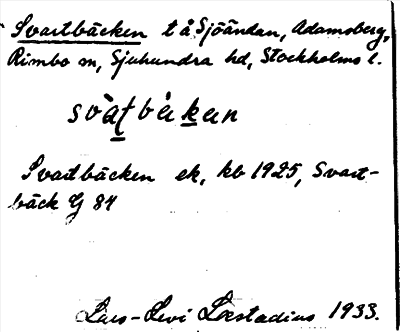 Svartbäcken t å Sjöändan, Adamsberg,
Rimbo sn, Sjuhundra hd, Stockholms l.
svàʈbàkan
Svartbäcken ek, kb 1925, Svart-
bäck G 84
Lars-Levi Læstadius 1933.